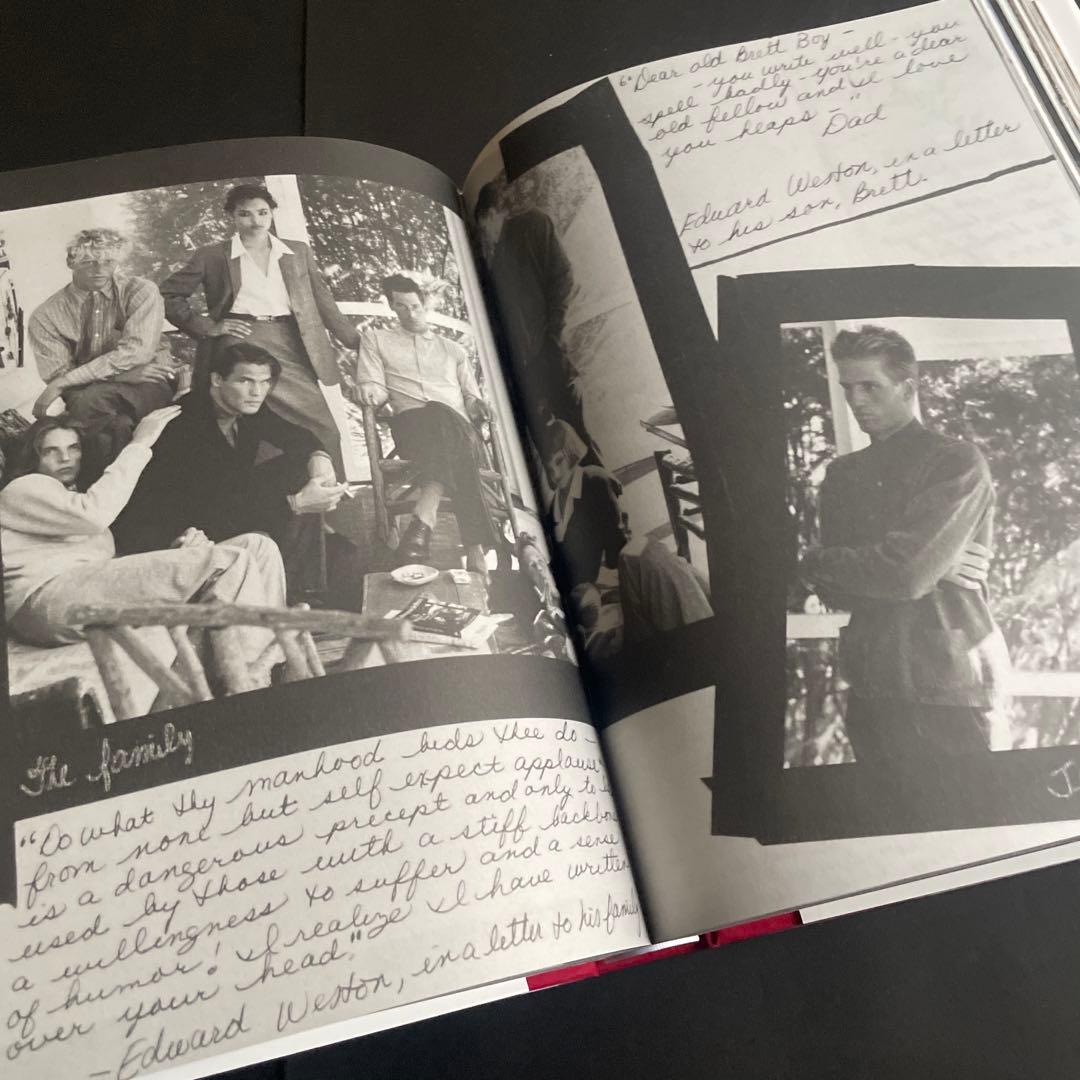 The family
"Do what thy manhood bids thee do –
from none but self expect applause"
is a dangerous precept and only to
used by those with a stiff
a willingness to suffer and a sense
of humor! I realize I have written
over your head."
– Edward Weston, in a letter to his family
"Dear old Brett Boy –
– you write well – you
spell badly – you're a dear
old fellow and I love
you heaps – "
Dad
Edward Weston, in a letter
to his son, Brett.
J